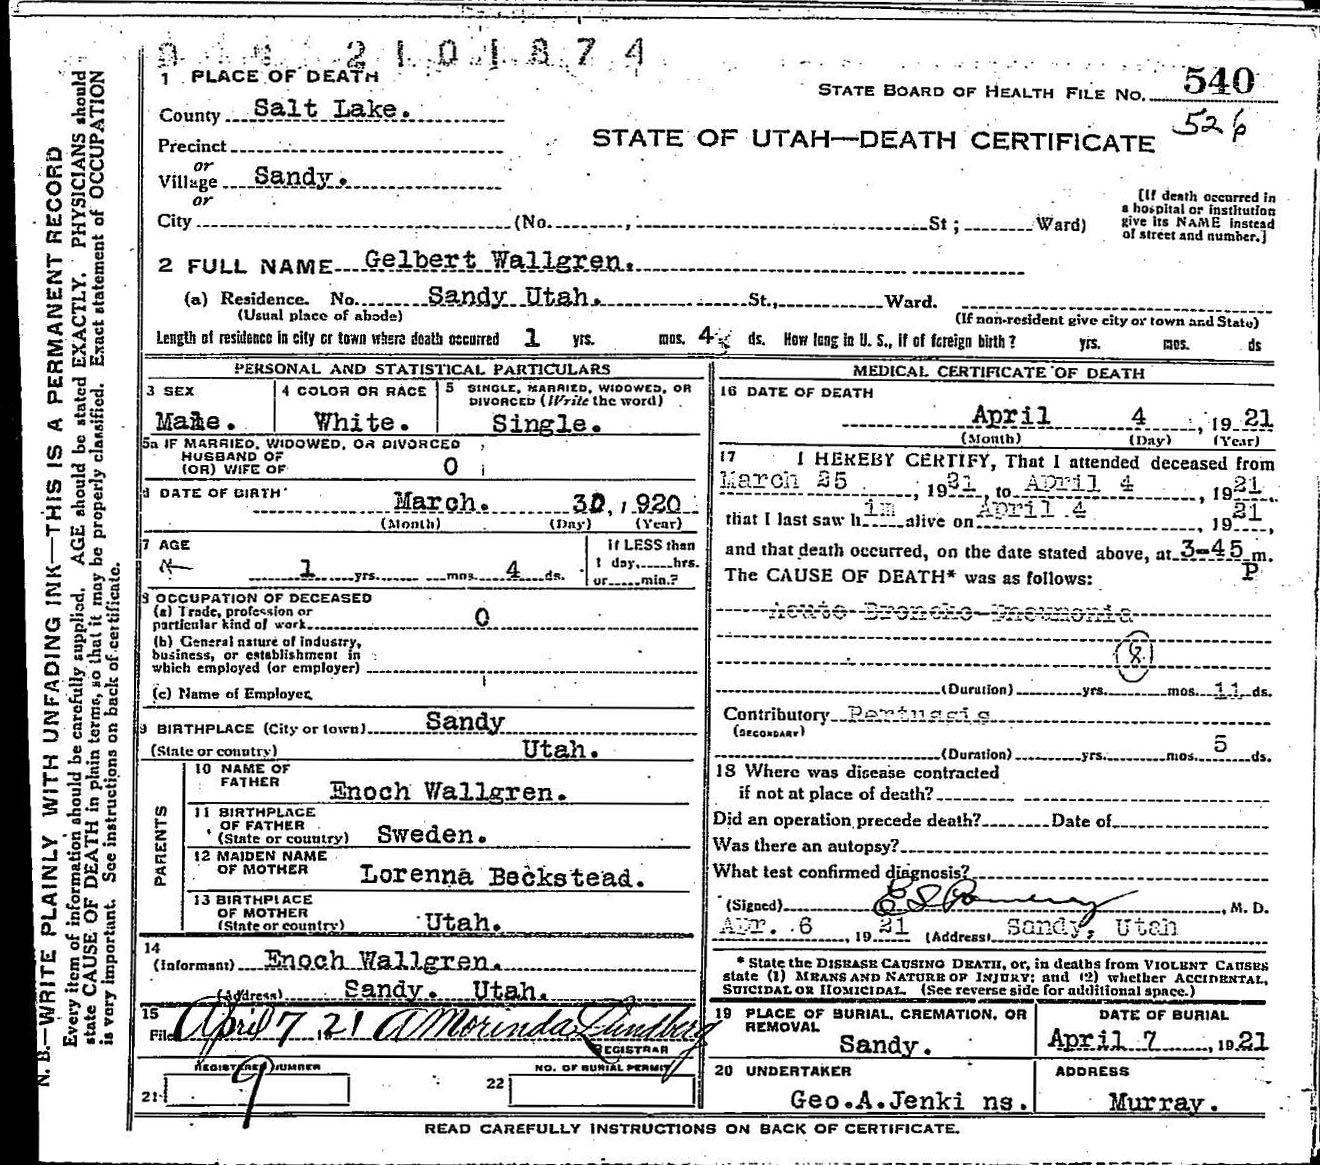 2101874
1 PLACE OF DEATH
STATE BOARD OF HEALTH FILE NO. 540
526
County Salt Lake.
STATE OF UTAH—DEATH CERTIFICATE
Precinct
or
Village Sandy.
or
City (No. , St; Ward)
[If death occurred in
a hospital or institution
give its NAME instead
of street and number.]
2 FULL NAME Gelbert Wallgren.
(a) Residence. No. Sandy Utah. St., Ward.
(Usual place of abode) (If non-resident give city or town and State)
Length of residence in city or town where death occurred 1 yrs. mos. 4 ds. How long in U. S., if of foreign birth? yrs. mos. ds
PERSONAL AND STATISTICAL PARTICULARS
3 SEX
Male.
4 COLOR OR RACE
White.
5 SINGLE, MARRIED, WIDOWED, OR
DIVORCED (Write the word)
Single.
5a IF MARRIED, WIDOWED, OR DIVORCED
HUSBAND OF
(OR) WIFE OF 0
6 DATE OF BIRTH
March. 30, 1920
(Month) (Day) (Year)
7 AGE
1 yrs. mos. 4 ds.
If LESS than
1 day, hrs.
or min.?
8 OCCUPATION OF DECEASED
(a) Trade, profession or
particular kind of work 0
(b) General nature of industry,
business, or establishment in
which employed (or employer)
(c) Name of Employer
9 BIRTHPLACE (City or town) Sandy
(State or country) Utah.
PARENTS
10 NAME OF
FATHER
Enoch Wallgren.
11 BIRTHPLACE
OF FATHER
(State or country) Sweden.
12 MAIDEN NAME
OF MOTHER
Lorenna Beckstead.
13 BIRTHPLACE
OF MOTHER
(State or country) Utah.
14
(Informant) Enoch Wallgren.
(Address) Sandy. Utah.
15
Filed April 7, 21 A Morinda Lundberg
REGISTRAR
REGISTERED NUMBER
21 9
NO. OF BURIAL PERMIT
22
MEDICAL CERTIFICATE OF DEATH
16 DATE OF DEATH
April 4, 1921
(Month) (Day) (Year)
17 I HEREBY CERTIFY, That I attended deceased from
March 25, 1921, to April 4, 1921
that I last saw him alive on April 4, 1921,
and that death occurred, on the date stated above, at 3-45 m.
P
The CAUSE OF DEATH* was as follows:
Acute Broncho-Pneumonia
8
(Duration) yrs. mos. 11 ds.
Contributory Pertussis
(SECONDARY)
(Duration) yrs. mos. 5 ds.
18 Where was disease contracted
if not at place of death?
Did an operation precede death? Date of
Was there an autopsy?
What test confirmed diagnosis?
(Signed) , M. D.
Apr. 6, 1921 (Address) Sandy, Utah
* State the DISEASE CAUSING DEATH, or, in deaths from VIOLENT CAUSES
state (1) MEANS AND NATURE OF INJURY; and (2) whether ACCIDENTAL,
SUICIDAL OR HOMICIDAL. (See reverse side for additional space.)
19 PLACE OF BURIAL, CREMATION, OR
REMOVAL
Sandy.
DATE OF BURIAL
April 7, 1921
20 UNDERTAKER
Geo.A.Jenki ns.
ADDRESS
Murray.
READ CAREFULLY INSTRUCTIONS ON BACK OF CERTIFICATE.
N. B.—WRITE PLAINLY WITH UNFADING INK—THIS IS A PERMANENT RECORD
Every item of information should be carefully supplied. AGE should be stated EXACTLY. PHYSICIANS should
state CAUSE OF DEATH in plain terms, so that it may be properly classified. Exact statement of OCCUPATION
is very important. See instructions on back of certificate.